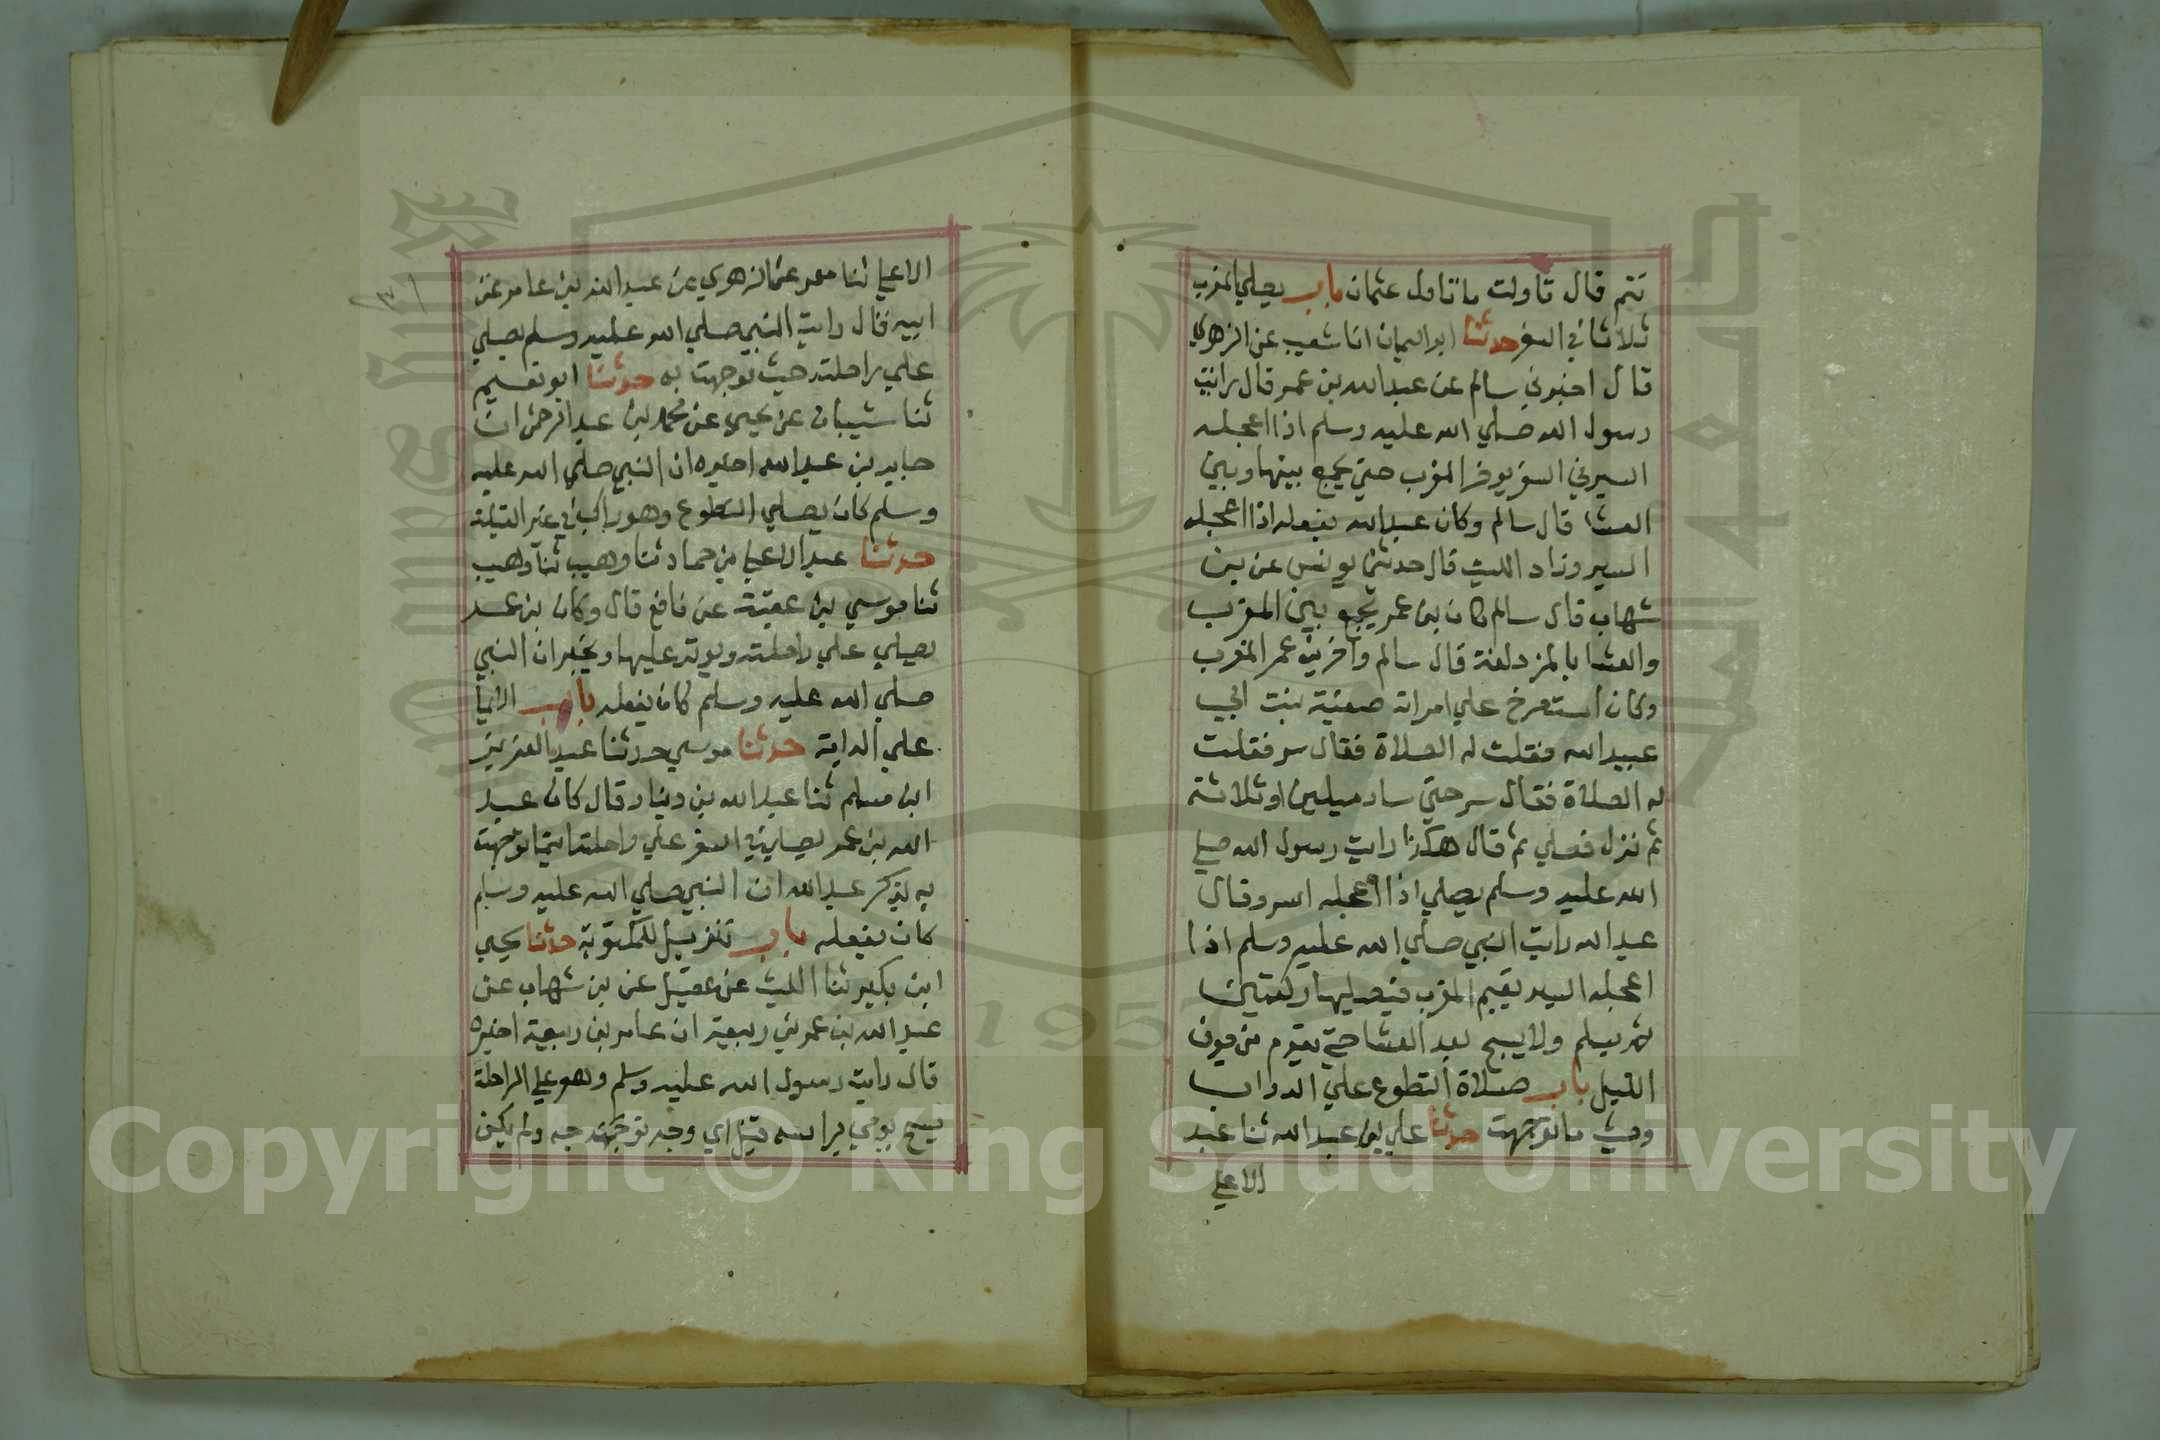 تتم قال تاولت ما تاول عثمان باب يصلي المغرب
ثلاثا في السفر حدثنا ابو اليمان انا شعيب عن الزهري
قال اخبرني سالم عن عبد الله بن عمر قال رايت
رسول الله صلي الله عليه وسلم اذا اعجله
السير في السفر يوخر المغرب حتي يجمع بينها وبين
العشا قال سالم وكان عبد الله يفعله اذا اعجله
السير وزاد الليث قال حدثني يونس عن بن
شهاب قال سالم كان بن عمر يجمع بين المغرب
والعشا بالمزدلفة قال سالم واخر بن عمر المغرب
وكان استصرخ علي امراته صفية بنت ابي
عبيد الله فقلت له الصلاة فقال سر فقلت
له الصلاة فقال سر حتي سار ميلين او ثلاثة
ثم نزل فصلي ثم قال هكذا رايت رسول الله صلي
الله عليه وسلم يصلي اذا اعجله السر وقال
عبد الله رايت النبي صلي الله عليه وسلم اذا
اعجله السير يقيم المغرب فيصليها ركعتين
ثم يسلم ولا يسبح بعد العشا حتي يقوم من جوف
الليل باب صلاة التطوع علي الدواب
وحيث ما توجهت حدثنا علي بن عبد الله ثنا عبد
الاعلي
الاعلي ثنا معمر عن الزهري عن عبد الله بن عامر عن
ابيه قال رايت النبي صلي الله عليه وسلم يصلي
علي راحلته حيث توجهت به حدثنا ابو نعيم
ثنا شيبان عن يحيي عن محمد بن عبد الرحمن ان
جابر بن عبد الله اخبره ان النبي صلي الله عليه
وسلم كان يصلي التطوع وهو راكب في غير القبلة
حدثنا عبد الاعلي بن حماد ثنا وهيب ثنا وهيب
ثنا موسي بن عقبة عن نافع قال وكان بن عمر
يصلي علي راحلته ويوتر عليها ويخبر ان النبي
صلي الله عليه وسلم كان يفعله باب الايما
علي الداية حدثنا موسي حدثنا عبد العزيز
ابن مسلم ثنا عبد الله بن دينار قال كان عبد
الله بن عمر يصلي في السفر علي راحلته اينما توجهت
به يذكر عبد الله ان النبي صلي الله عليه وسلم
كان يفعله باب تنزيل للمكتوبة حدثنا يحيي
ابن بكير ثنا الليث عن عقيل عن بن شهاب عن
عبد الله بن عمر بن ربيعة ان عامر بن ربيعة اخبره
قال رايت رسول الله عليه وسلم وهو علي الراحلة
يسبح يومي براسه قبل اي وجه توجهت به ولم يكن
Copyright © King Saud University
King Saud University
1957